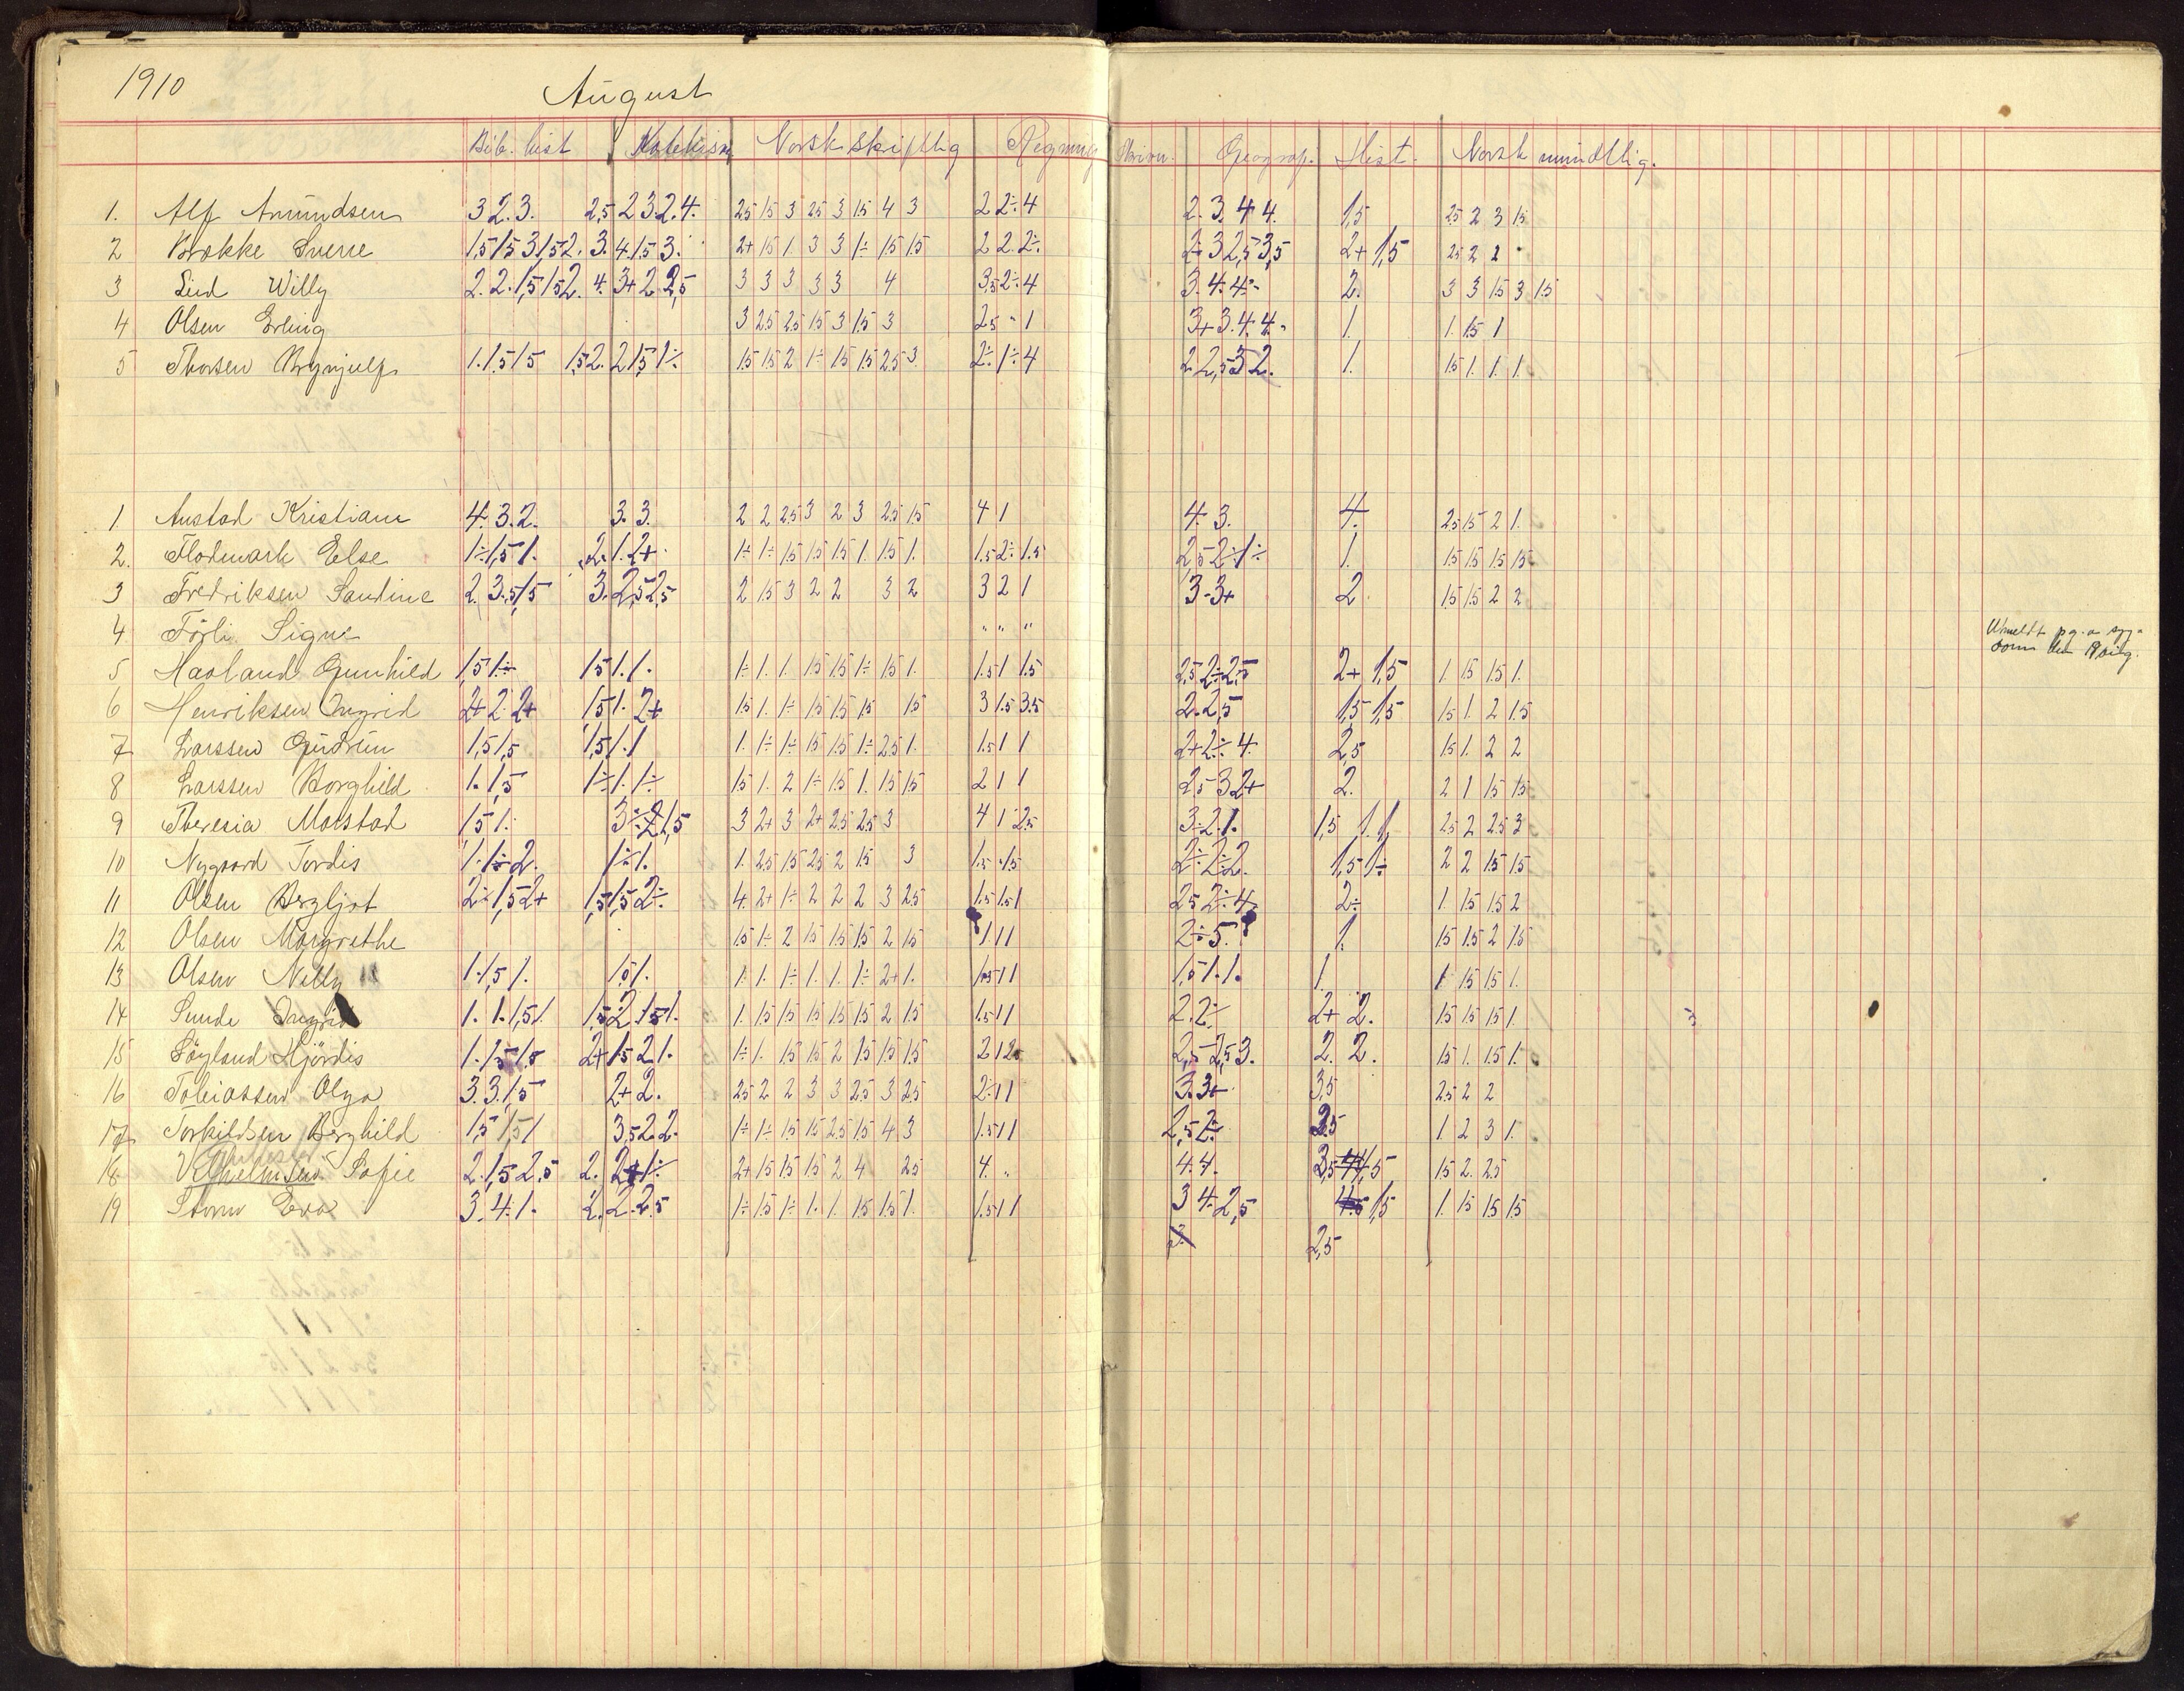 1910 August
Bib. hist Katekism Norsk skriftlig Regning Skrivn. Geograf. Hist. Norsk mundtlig.
1. Alf Amundsen 3 2. 3. 2,5 2 3. 2. 4. 2.5 1.5 3 2.5 3 1.5 4 3 2 2÷ 4 2. 3. 4 4. 1,5 2.5 2 3 1.5
2 Brekke Sverre 1,5 1,5 3 1,5 2. 3. 4. 1.5 3. 2+ 1.5 1. 3 3 1÷ 1.5 1.5 2 2. 2÷. 2÷ 3 2,5 3,5 2+ 1,5 2.5 2 2 "
3 Lied Willy 2. 2. 1,5 1,5 2. 4. 3+ 2. 2,5 3 3 3 3 3 4 3.5 2÷ 4 3. 4. 4÷ 2. 3 3 1.5 3 1.5
4 Olsen Erling 3 2.5 2.5 1.5 3 1.5 3 2.5 " 1 3+ 3. 4. 4. 1. 1. 1.5 1
5 Thorsen Brynjulf 1. 1,5 1,5 1,5 2. 2 1,5 1÷ 1.5 1.5 2 1÷ 1.5 1.5 2.5 3 2÷ 1÷ 4 2. 2,5 3 2. 1. 1.5 1. 1. 1.
1 Austad Kristiane 4. 3. 2. 3. 3. 2 2 2.5 3 2 3 2.5 1.5 4 1 4. 3. 4. 2.5 1.5 2 1.
2. Flotmark Else 1÷ 1,5 1. 2. 1. 2+ 1÷ 1÷ 1.5 1.5 1.5 1. 1.5 1. 1.5 2÷ 1.5 2,5 2÷ 1÷ 1. 1.5 1.5 1.5 1.5
3 Fredriksen Santine 2. 3. 1,5 3. 2,5 2,5 2 1.5 3 2 2 3 2 3 2 1 3 3+ 2 1.5 1.5 2 2
4 Förli Signe " " "
Utmeldt p.g.a syg-
dom den 18 aug.
5 Haaland Gunhild 1,5 1÷ 1,5 1. 1. 1÷ 1. 1. 1.5 1.5 1÷ 1.5 1. 1.5 1 1.5 2,5 2÷ 2,5 2+ 1,5 1. 1.5 1.5 1.
6 Henriksen Ingrid 2+ 2. 2+ 1,5 1. 2+ 1.5 1. 1÷ 1.5 1.5 1.5 1.5 3 1.5 3.5 2. 2,5 1,5 1,5 1.5 1. 2 1.5
7 Larssen Gudrun 1,5 1,5 1,5 1. 1 1. 1÷ 1÷ 1.5 1.5 1÷ 2.5 1. 1.5 1 1 2+ 2÷ 4. 2,5 1.5 1. 2 2
8 Larssen Borghild 1. 1,5 1÷ 1. 1÷ 1.5 1. 2 1÷ 1.5 1. 1.5 1.5 2 1 1 2,5 3 2+ 2. 2 1 1.5 1.5
9 Theresia Molstad 1,5 1. 3÷ 2 1,5 3 2+ 3 2+ 2.5 2.5 3 4 1 2.5 3÷ 2. 1. 1,5 1. 1. 2.5 2 2.5 3
10 Nygaard Tordis 1. 1÷ 2. 1÷ 1. 1. 2.5 1.5 2.5 2 1.5 3 1.5 1.5 2÷ 2÷ 2. 1,5 1÷ 2 2 1.5 1.5
11 Olsen Bergljot 2÷ 1,5 2+ 1,5 1,5 2÷ 4. 2+ 1÷ 2 2 2 3 2.5 1.5 1.5 1 2,5 2÷ 4. 2÷ 1. 1.5 1.5 2
12 Olsen Margrethe 1.5 1÷ 2 1.5 1.5 1.5 2 1.5 1 1 1 2÷ 5. 1. 1.5 1.5 2 1.5
13 Olsen Nelly 1. 1,5 1. 1,5 1. 1. 1. 1÷ 1. 1. 1÷ 2+ 1. 1.5 1 1 1,5 1. 1. 1. 1 1.5 1.5 1.
14 Sunde Ingrid 1. 1. 1,5 1. 1,5 2. 1,5 1. 1. 1.5 1.5 1.5 1.5 1.5 2 1.5 1.5 1 1 2. 2÷ 2+ 2. 1.5 1.5 1.5 1.
15 Söyland Hjördis 1. 1,5 1,5 2+ 1,5 2 1. 1÷ 1. 1.5 1.5 2 1.5 1.5 1.5 2 1 2 2,5 2,5 3. 2. 2. 1.5 1. 1.5 1.
16 Tobiassen Olga 3. 3. 1,5 2+ 2. 2.5 2 2 3 3 2.5 3 2.5 2÷ 1 1 3. 3+ 3,5 2.5 2 2
17 Torkildsen Berghild 1,5 1,5 1 3,5 2. 2. 1÷ 1÷ 1.5 1.5 2.5 1.5 4 3 1.5 1 1 2,5 2÷ 2,5 1. 2 3 1.
18 Vilhelmsen Sofie 2. 1,5 2,5 2. 2+ 1÷ 2+ 1.5 1.5 1.5 2 4 2.5 4. " 4. 4. 3,5 1,5 1.5 2. 2.5
19 Storm Eva 3. 4. 1. 2. 2. 2,5 1÷ 1.5 1÷ 1. 1. 1.5 1.5 1. 1.5 1 1 3 4. 2,5 1,5 1. 1.5 1.5 1.5
2,5